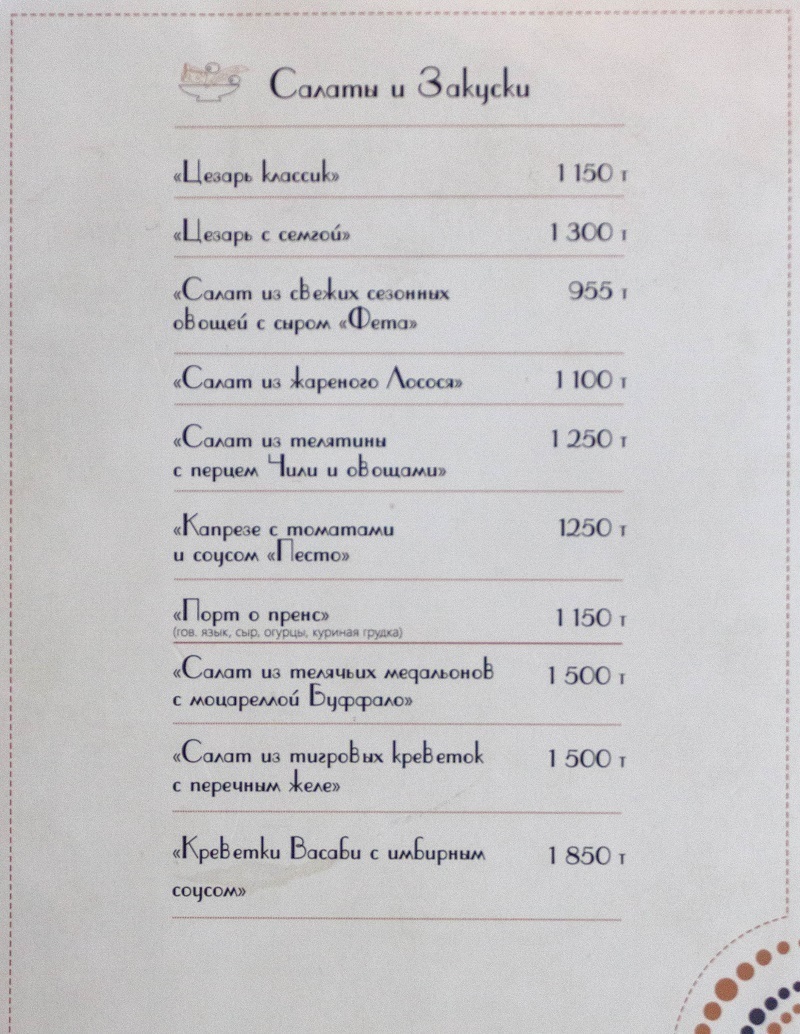 Салаты и Закуски
«Цезарь классик» 1 150 т
«Цезарь с семгой» 1 300 т
«Салат из свежих сезонных 955 т
овощей с сыром «Фета»
«Салат из жареного Лосося» 1 100 т
«Салат из телятины 1 250 т
с перцем Чили и овощами»
«Капрезе с томатами 1250 т
и соусом «Песто»
«Порт о пренс» 1 150 т
(гов. язык, сыр, огурцы, куриная грудка)
«Салат из телячьих медальонов 1 500 т
с моцареллой Буффало»
«Салат из тигровых креветок 1 500 т
с перечным желе»
«Креветки Васаби с имбирным 1 850 т
соусом»